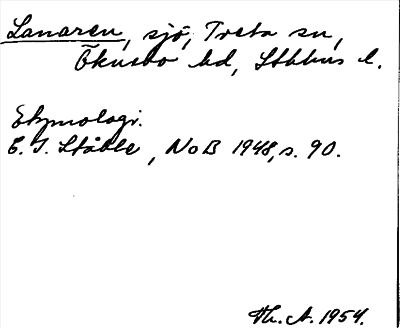 Lanaren, sjö, Treta sn,
Åkerbo hd, Sthlms l.
Etymologi.
C. I. Ståhle, NoB 1948, s. 90.
Th. A. 1954.